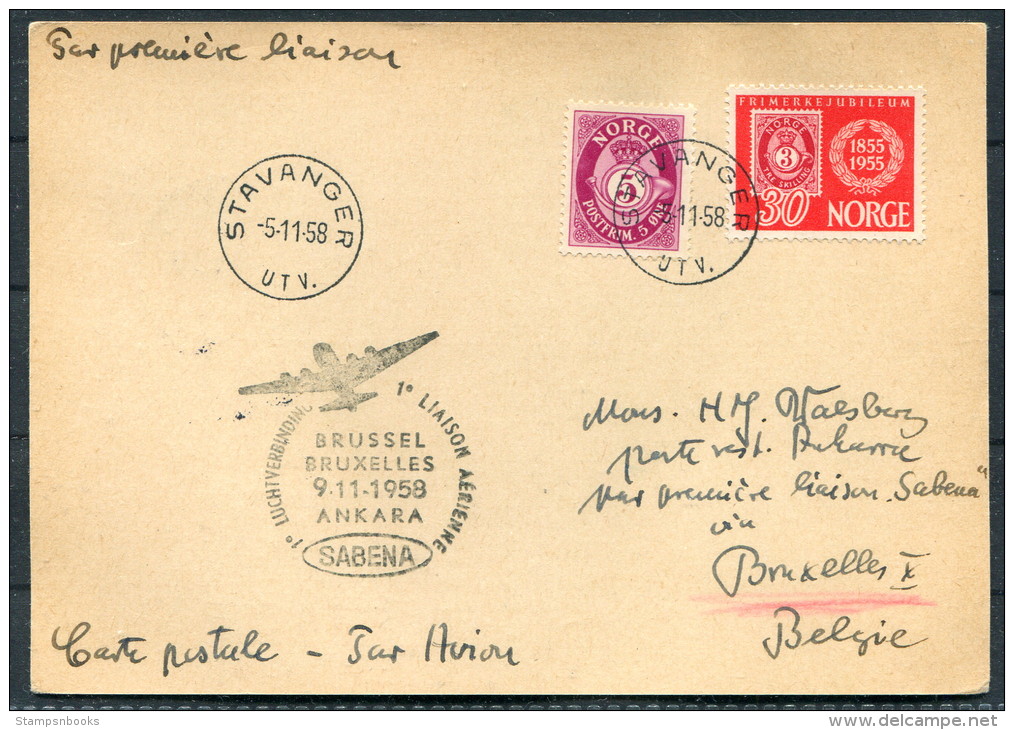 Par première liaison
STAVANGER
-5-11-58
UTV.
NORGE
5
POSTFRIM. 5 ØRE
STAVANGER
-5-11-58
UTV.
FRIMERKEJUBILEUM
NORGE
3
TRE SKILLING
1855
1955
30 NORGE
1º LUCHTVERBINDING
1º LIAISON AÉRIENNE
BRUSSEL
BRUXELLES
9-11-1958
ANKARA
SABENA
Mons. H
poste rest.
par première liaison "Sabena"
via
Bruxelles X
Belgie
Carte postale - Par Avion
Stampsnbooks
www.delcampe.net